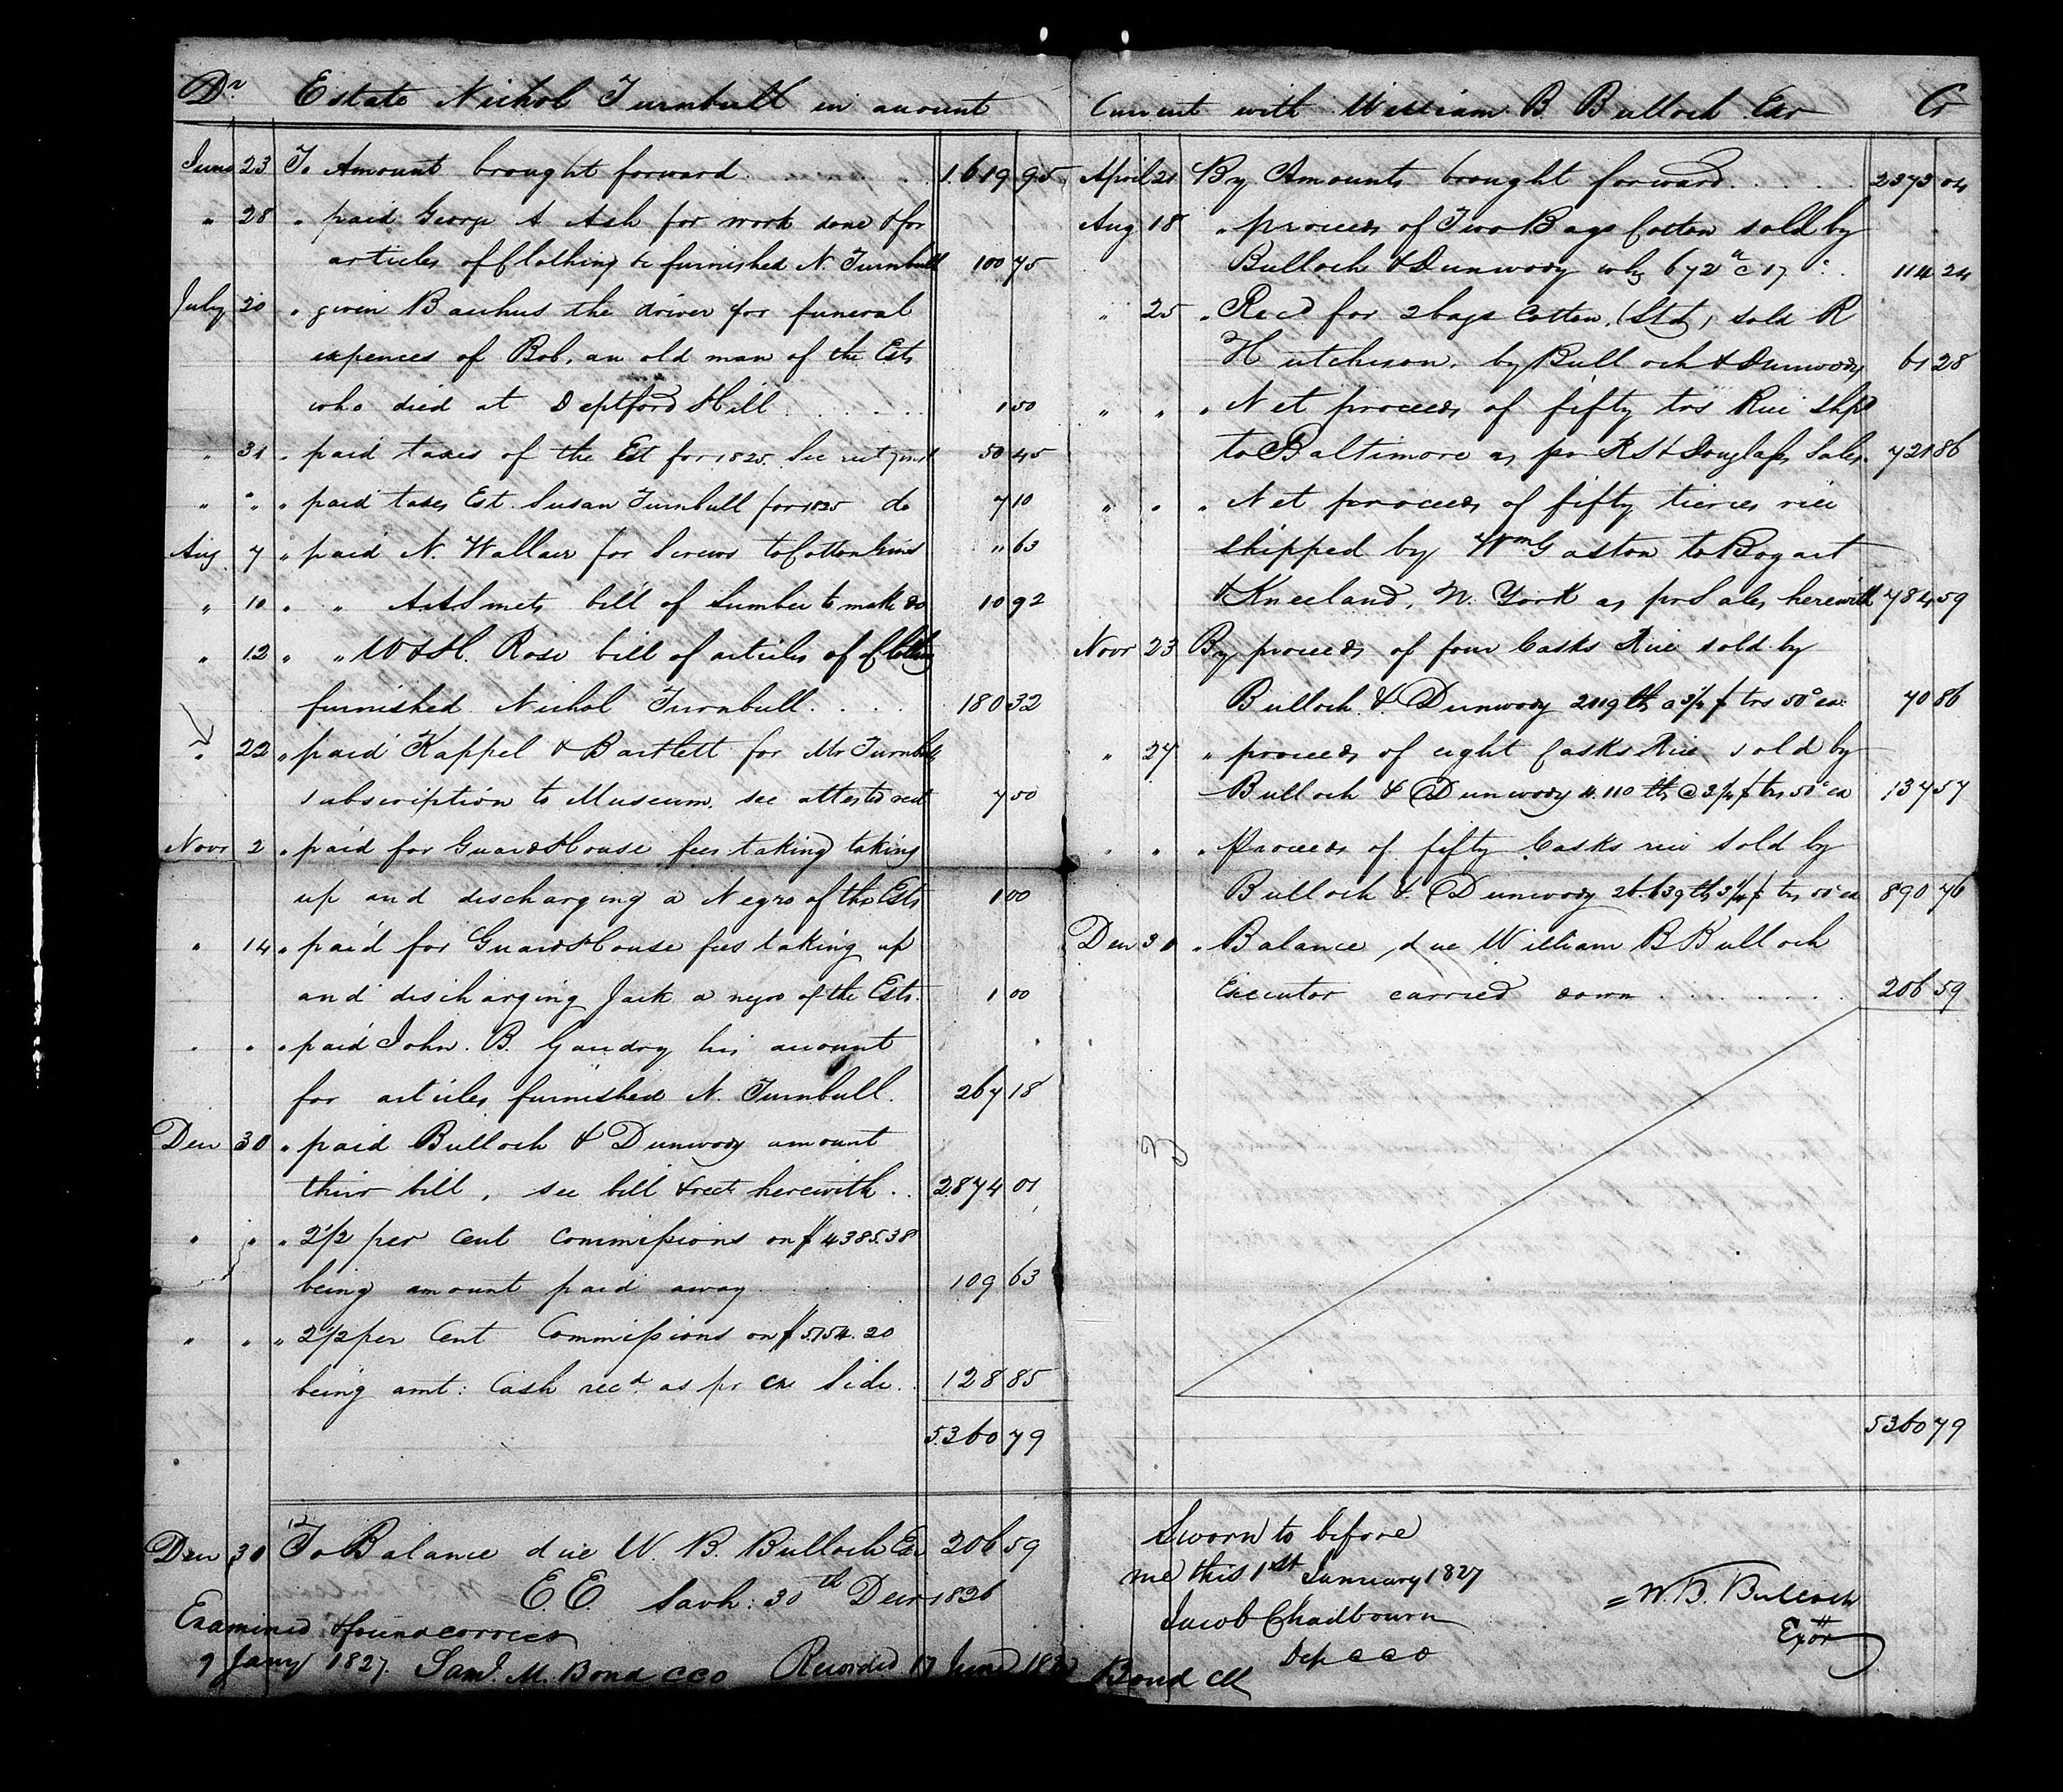 Dr Estate Nichol Turnbull in account
June 23 To Amount brought forward . . . . . . 1.619 95
" 28 " paid George A Ash for work done & for
articles of Clothing &c furnished N. Turnbull 100 75
July 20 " given Bauhus the driver for funeral
expences of Bob, an old man of the Este
who died at Deptford Hill . . . . . 1 50
" 31 " paid taxes of the Est for 1825. See rect 50 45
" " " paid taxes Est. Susan Turnbull for 1825 do 7 10
Aug 7 " paid N. Wallace for Screws to Cotton Gins " 63
" 10 " " bill of Lumber to make do 10 92
" 12 " " W & H. Rose bill of articles of Clothing
furnished Nichol Turnbull . . . . 180 32
" 22 " paid Kappel & Bartlett for Mr Turnbulls
subscription to Museum. see attested rect 7 50
Novr 2 " paid for Guard House fees taking taking
up and discharging a Negro of the Este 1 00
" 14 " paid for Guard House fees taking up
and discharging Jack a negro of the Este. 1 00
" " " paid John. B. Gaudry his account
for articles furnished N. Turnbull. 267 18
Decr 30 " paid Bulloch & Dunwody amount
their bill, see bill & rect herewith . . 2874 01
" " " 2 1/2 per cent commissions on $4385.38
being amount paid away 109 63
" " " 2 1/2 per Cent Commissions on $5154.20
being amt: Cash recd. as pr Cr Side. . 128 85
5.360 79
Decr 30 To Balance due W. B. Bulloch Exr 206 59
E.E. Savh: 30th Decr 1826
Examined & found correct
9 Jany 1827. Saml. M. Bond CCO Recorded 17 June
Current with William B. Bulloch Exr Cr
April 21 By Amounts brought forward . . . . . 2373 04
Aug 18 " proceeds of Two Bags Cotton sold by
Bulloch & Dunwody wbg 672 lb @ 17 c . . 114 24
" 25 " Recd for 2 bags Cotton, (Std) sold R
Hutchison. by Bulloch & Dunwody 61 28
" " " Net proceeds of fifty trs Rice Shpd
to Baltimore as pr R S & Douglass Sales. 721 86
" " " Net proceeds of fifty tierces rice
shipped by Wm Gaston to Bogart
& Kneeland, N. York as pr Sales herewith 784 59
Novr 23 By proceeds of four Casks Rice sold by
Bulloch & Dunwody 2119 lb @ 3 1/4 $ trs 50c ea. 70 86
" 27 " proceeds of eight Casks Rice sold by
Bulloch & Dunwody 4.110 lb @ 3 1/4 $ trs 50c ea 137 57
" " " Proceeds of fifty Casks rice sold by
Bulloch & Dunwody 26.639 lb 3 1/4 $ trs 50c ea 890 76
Decr 30 " Balance due William B Bulloch
Executor carried down . . . . . . . 206 59
5360 79
Sworn to before
me this 1st January 1827
Jacob Chadbourn
Dep CCO
W. B. Bulloch
Exor
Bond Clk